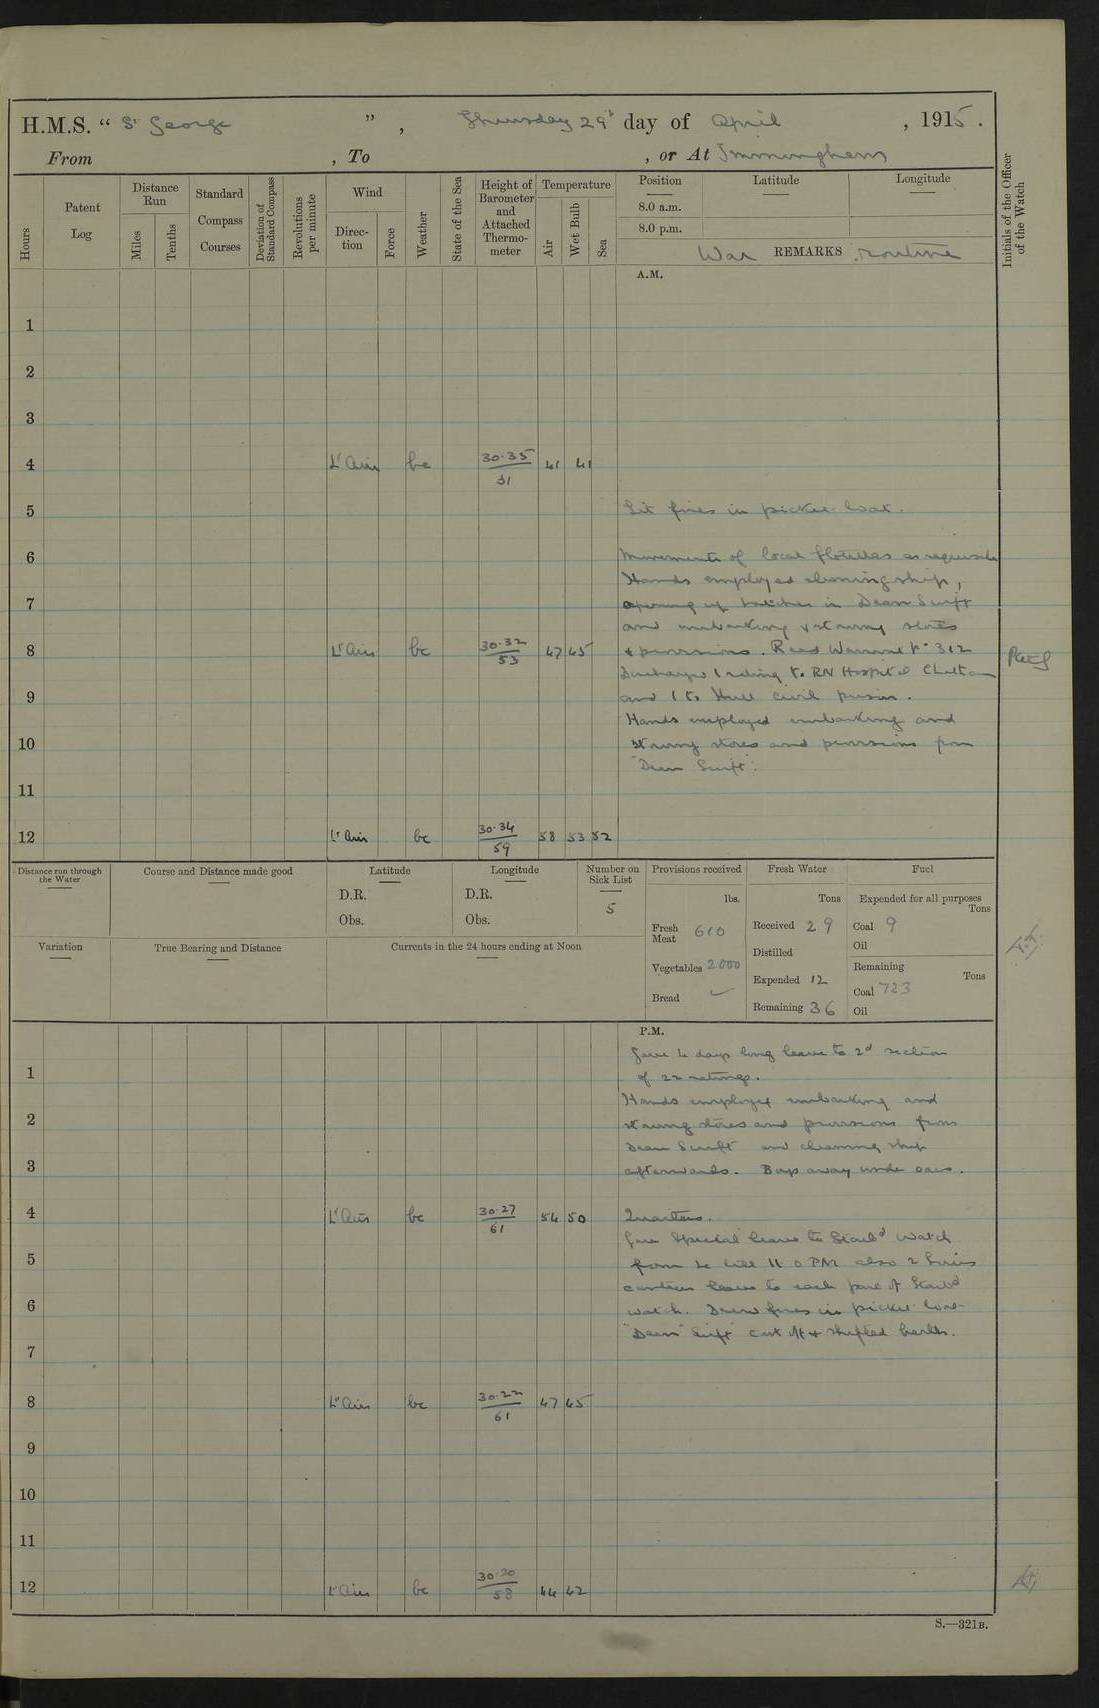 H.M.S. “ St George ” , Thursday 29th day of April , 1915 .
From , To , or At Immingham
Hours
Patent Log
Distance Run
Miles
Tenths
Standard Compass Courses
Deviation of Standard Compass
Revolutions per minute
Wind
Direction
Force
Weather
State of the Sea
Height of Barometer and Attached Thermometer
Temperature
Air
Wet Bulb
Sea
Position Latitude Longitude
8.0 a.m.
8.0 p.m.
War REMARKS routine
Initials of the Officer of the Watch
A.M.
1
2
3
4 Lt Airs bc 30.35 / 51 41 41
5 Lit fires in picket boat.
6 Movements of local flotillas as requisite
Hands employed cleaning ship,
7 opening up hatches in Dean Swift
and embarking & stowing stores
8 Lt Airs bc 30.32 / 53 47 45 & provisions. Read Warrant No 312
Discharged 1 rating to RN Hospital Chatham
9 and 1 to Hull civil prison.
Hands employed embarking and
10 stowing stores and provisions from
"Dean Swift".
11
12 Lt Airs bc 30.34 / 59 58 53 52
Distance run through the Water
Course and Distance made good
Latitude
D.R.
Obs.
Longitude
D.R.
Obs.
Number on Sick List
5
Provisions received
lbs.
Fresh Meat 610
Vegetables 2000
Bread
Fresh Water
Tons
Received 29
Distilled
Expended 12
Remaining 36
Fuel
Expended for all purposes
Tons
Coal 9
Oil
Remaining
Tons
Coal 723
Oil
Variation
True Bearing and Distance
Currents in the 24 hours ending at Noon
P.M.
Gave 4 days long leave to 2d section
1 of 22 ratings.
Hands employed embarking and
2 stowing stores and provisions from
Dean Swift and cleaning ship
3 afterwards. Boys away under oars.
4 Lt Airs bc 30.27 / 61 54 50 Quarters.
Gave Special leave to Starbd Watch
5 from 4 till 11 0 PM also 2 hours
canteen leave to each part of Starbd
6 watch. Drew fires in picket boat
"Dean Swift" cast off & shifted berth.
7
8 Lt Airs bc 30.22 / 61 47 45
9
10
11
12 Lt Airs bc 30.20 / 58 44 42
S.—321B.